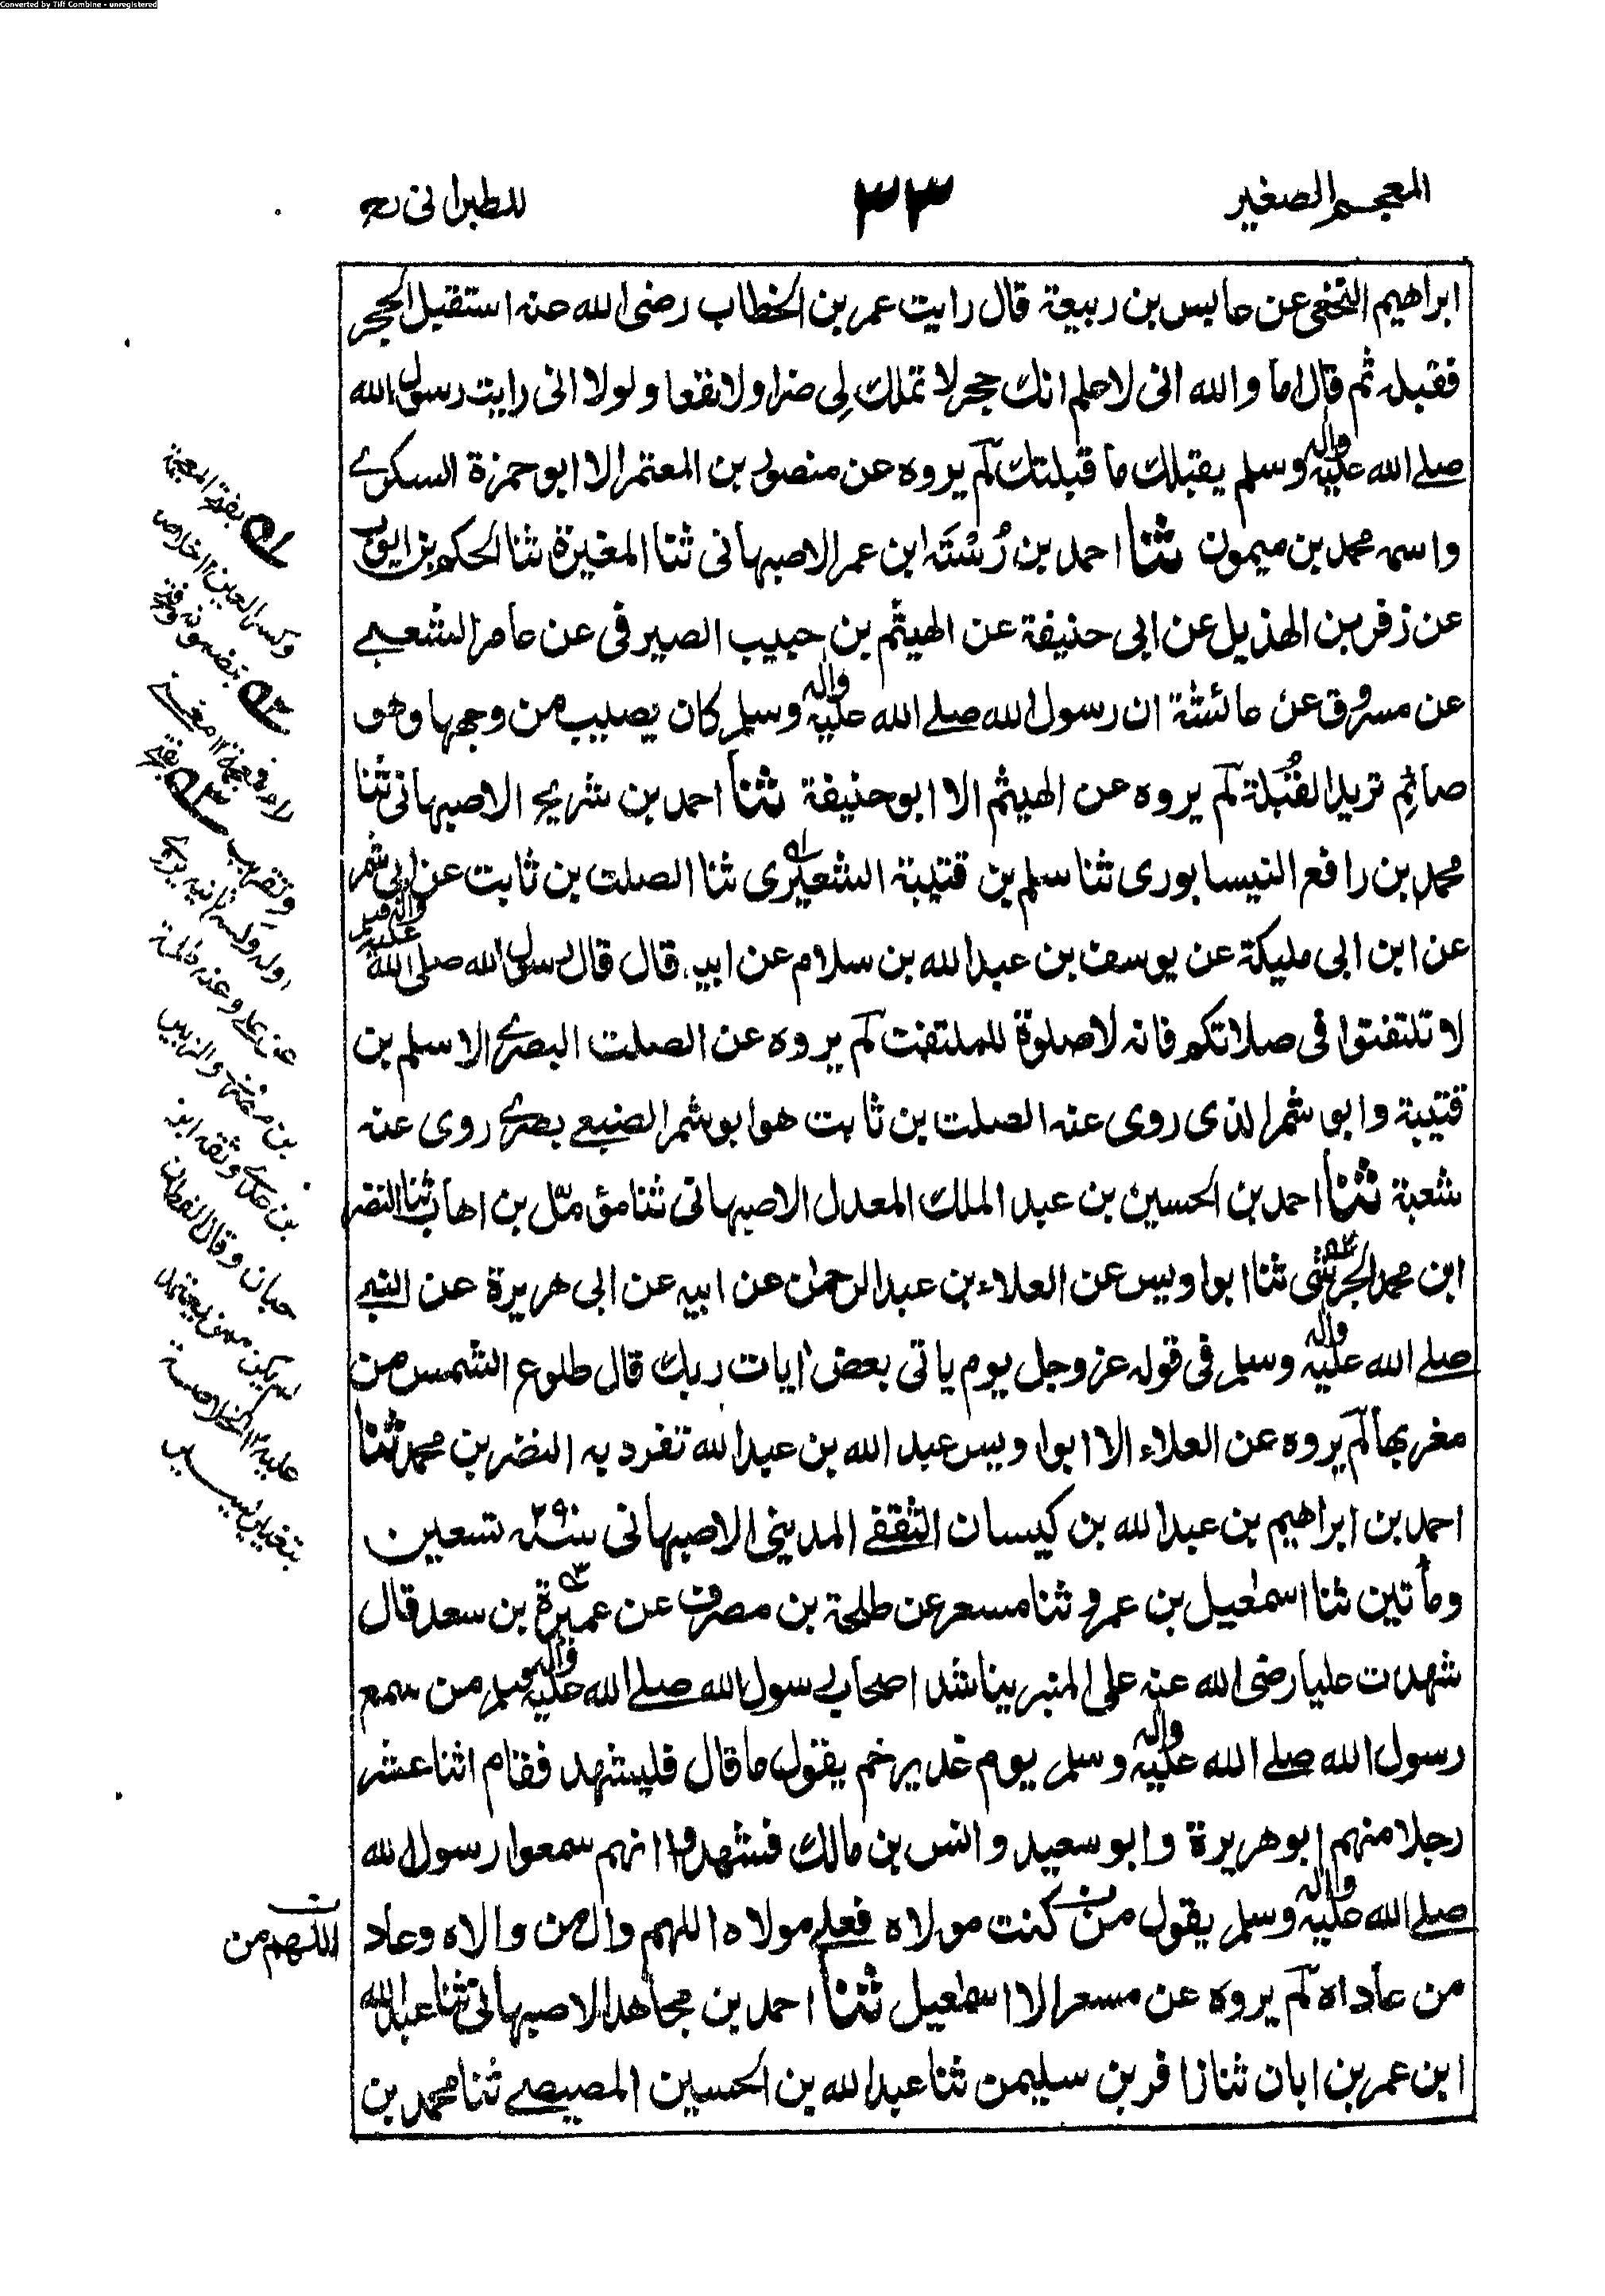 Converted by Tiff Combine - unregistered
المعجم الصغير
٣٣
للطبرانی
ابراهيم النخعى عن عابس بن ربيعة قال رايت عمر بن الخطاب رضى الله عنه استقبل الحجر
فقبله ثم قال اما والله انى لاعلم انك حجر لا تملك لى ضرا ولا نفعا ولولا انى رايت رسول الله
صلے الله عليه واله وسلم يقبلك ما قبلتك لم يروه عن منصور بن المعتمر الا ابو حمزة السكرے
واسمه محمد بن ميمون ثنا احمد بن رُسْتَه ابن عمر الاصبهانى ثنا المغيرة ثنا الحكم بن ايوب
عن زفر بن الهذيل عن ابى حنيفة عن الهيثم بن حبيب الصيرفى عن عامر الشعبے
عن مسروق عن عائشة ان رسول الله صلے الله عليه واله وسلم كان يصيب من وجهها وهو
صائم تريد القُبلة لم يروه عن الهيثم الا ابو حنيفة ثنا احمد بن شريح الاصبهانى ثنا
محمد بن رافع النيسابورى ثنا سلم بن قتيبة الشعيرى ثنا الصلت بن ثابت عن ابى شمر
عن ابن ابى مليكة عن يوسف بن عبد الله بن سلام عن ابيه قال قال رسول الله صلى الله عليه واله وسلم
لا تلتفتوا فى صلاتكم فانه لا صلوة للملتفت لم يروه عن الصلت البصرے الا سلم بن
قتيبة وابو شمر الذى روى عنه الصلت بن ثابت هو ابو شمر الضبعے بصرے روى عنه
شعبة ثنا احمد بن الحسين بن عبد الملك المعدل الاصبهانى ثنا مؤمّل بن اهاب ثنا النضر
ابن محمد الجرشى ثنا ابو اويس عن العلاء بن عبد الرحمٰن عن ابيه عن ابى هريرة عن النبے
صلے الله عليه واله وسلم فى قوله عز وجل يوم ياتى بعض اٰيات ربك قال طلوع الشمس من
مغربها لم يروه عن العلاء الا ابو اويس عبد الله بن عبد الله تفرد به النضر بن محمد ثنا
احمد بن ابراهيم بن عبد الله بن كيسان الثقفے المدينى الاصبهانى سنة ٢٩٠ تسعين
ومأتين ثنا اسمٰعيل بن عمرو ثنا مسعر عن طلحة بن مصرف عن عميرة بن سعد قال
شهدت عليا رضى الله عنه على المنبر يناشد اصحاب رسول الله صلے الله عليه واله وسلم من سمع
رسول الله صلے الله عليه واله وسلم يوم غدير خم يقول ما قال فليشهد فقام اثنا عشر
رجلا منهم ابو هريرة وابو سعيد وانس بن مالك فشهدوا انهم سمعوا رسول الله
صلے الله عليه واله وسلم يقول من كنت مولاه فعلے مولاه اللهم وال من والاه وعاد
من عاداه لم يروه عن مسعر الا اسمٰعيل ثنا احمد بن مجاهد الاصبهانى ثنا عبد الله
ابن عمر بن ابان ثنا زافر بن سليمن ثنا عبد الله بن الحسين المصيصے ثنا محمد بن
بفتح المعجمة
وكسر العين ١٢ خلاصه
عن على وعنه طلحة
بن مصرف والزبير
بن عدے وثقه ابن
حبان وقال القطان
لم يكن ممن يعتمد
عليه ١٢ الخلاصة
بتغيير يسير
اللهم من